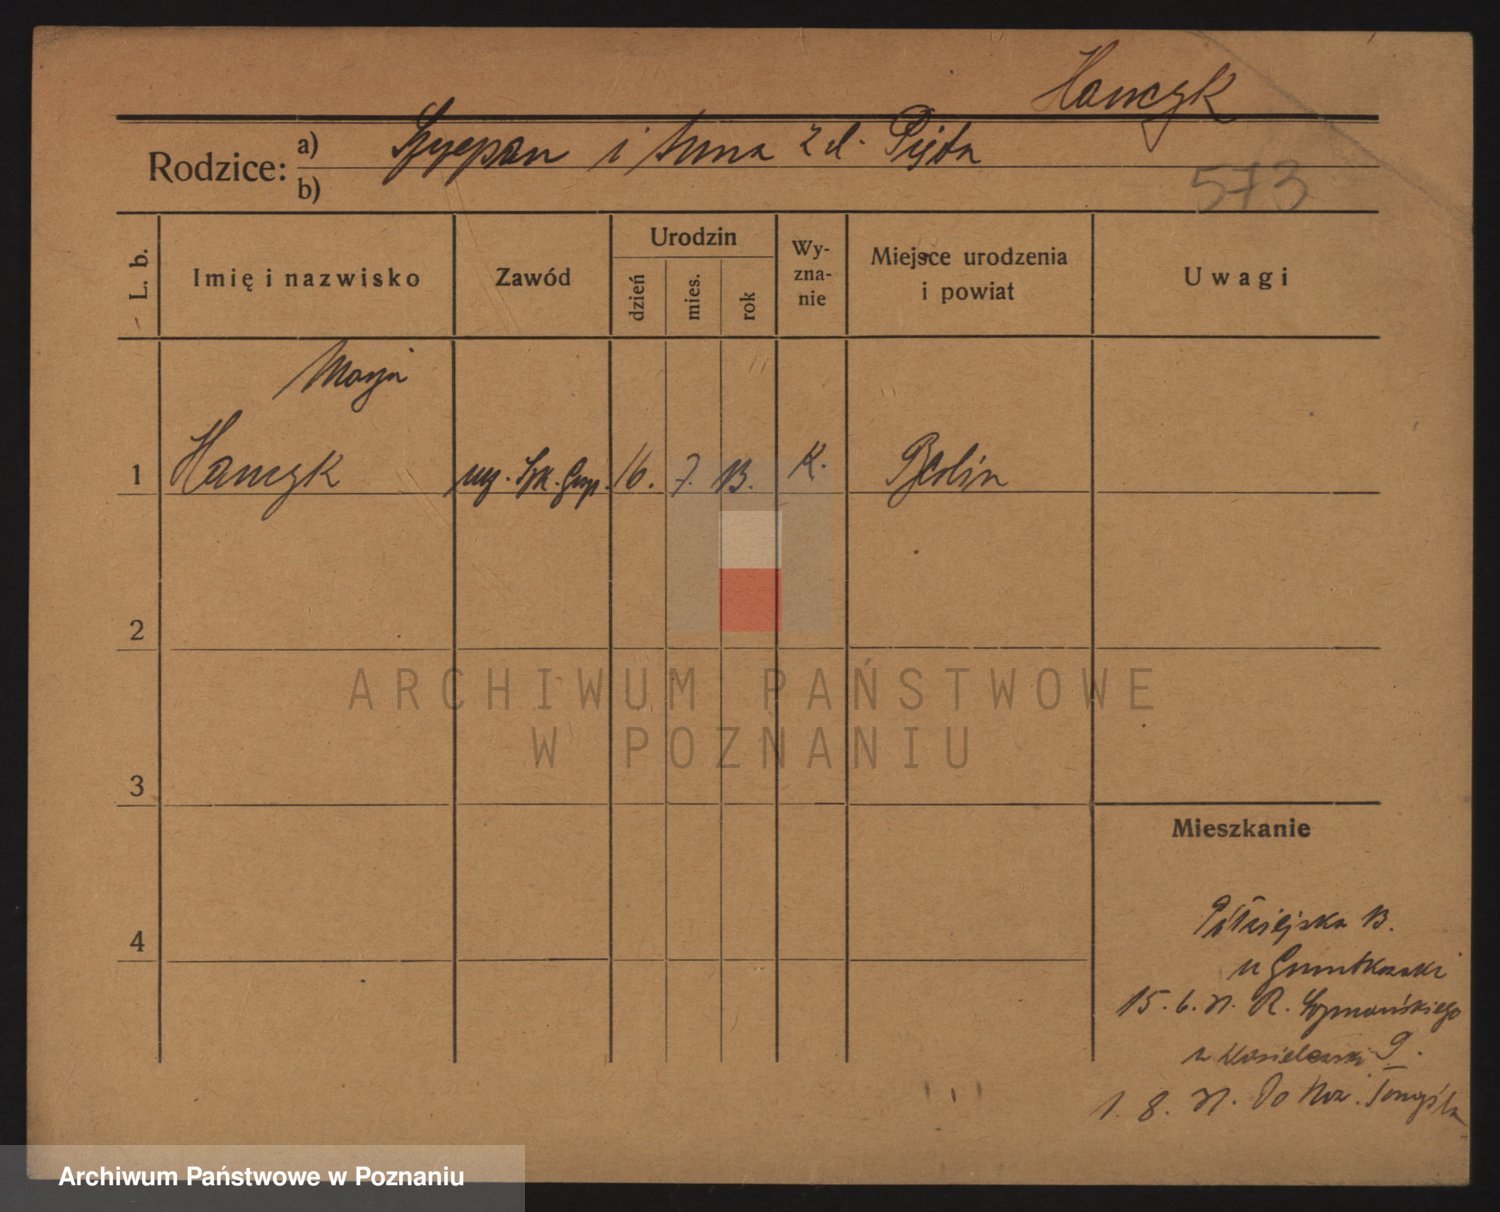 Hanczyk
Rodzice: a) Szczepan i Anna z d. Pięta
b)
573
L. b.
Imię i nazwisko
Zawód
Urodzin
dzień
mies.
rok
Wy-
zna-
nie
Miejsce urodzenia
i powiat
Uwagi
Marja
1 Hanczyk ucz. Szk. Gosp. 16. 7. 13. K. Berlin
2
3
4
Mieszkanie
Półwiejska 13.
u
15. 6. 31. R. Szymańskiego
1. 8. 31. Do
ARCHIWUM PAŃSTWOWE
W POZNANIU
Archiwum Państwowe w Poznaniu